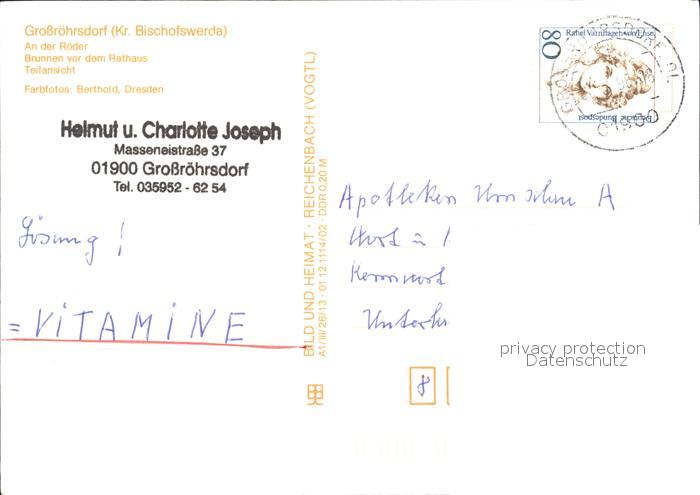 Großröhrsdorf (Kr. Bischofswerda)
An der Röder
Brunnen vor dem Rathaus
Teilansicht
Farbfotos: Berthold, Dresden
Helmut u. Charlotte Joseph
Masseneistraße 37
01900 Großröhrsdorf
Tel. 035952 - 62 54
Lösung!
= VITAMINE
BILD UND HEIMAT · REICHENBACH (VOGTL)
A1/III/26/13 · 01 12 1114/02 · DDR 0,20 M
80
Rahel Varnhagen von Ense
Deutsche Bundespost
01900
Apotheken Umschau A
Wort u
Kennwort
Unterh
8
privacy protection
Datenschutz